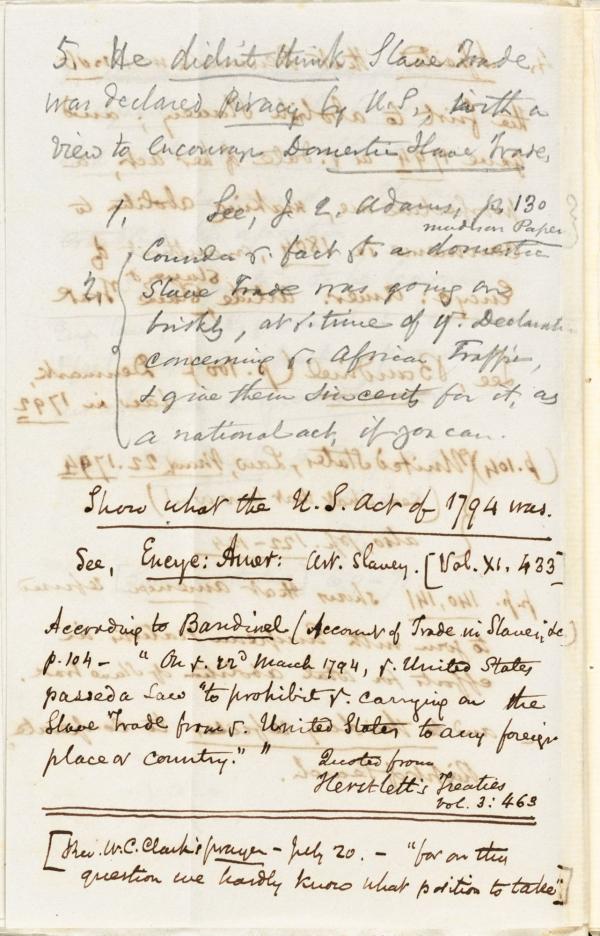 5. He didn't think Slave Trade
was declared Piracy by U.S., with a
view to encourage Domestic Slave Trade,
1, See, J. Q. Adams, p. 130
madison Paper
Consider ye. fact yt. a domestic
2, Slave Trade was going on
briskly, at ye. time of yr. Declarat
concerning ye. African Traffic,
& give them sin cents for it, as
a national act, if you can.
Show what the U.S. Act of 1794 was.
See, Encyc: Amer: Art. Slavery. [Vol. XI. 433]
According to Bandinel (Account of Trade in Slaves, &c
p. 104 – " On ye. 22d March 1794, ye. United States
passed a Law "to prohibit ye. carrying on the
Slave Trade from ye. United States to any foreign
place or country." "
Quoted from
Hertslett's Treaties
vol. 3: 463
[Rev. W. C. Clark's prayer – July 20. – "for on this
question we hardly know what position to take"]